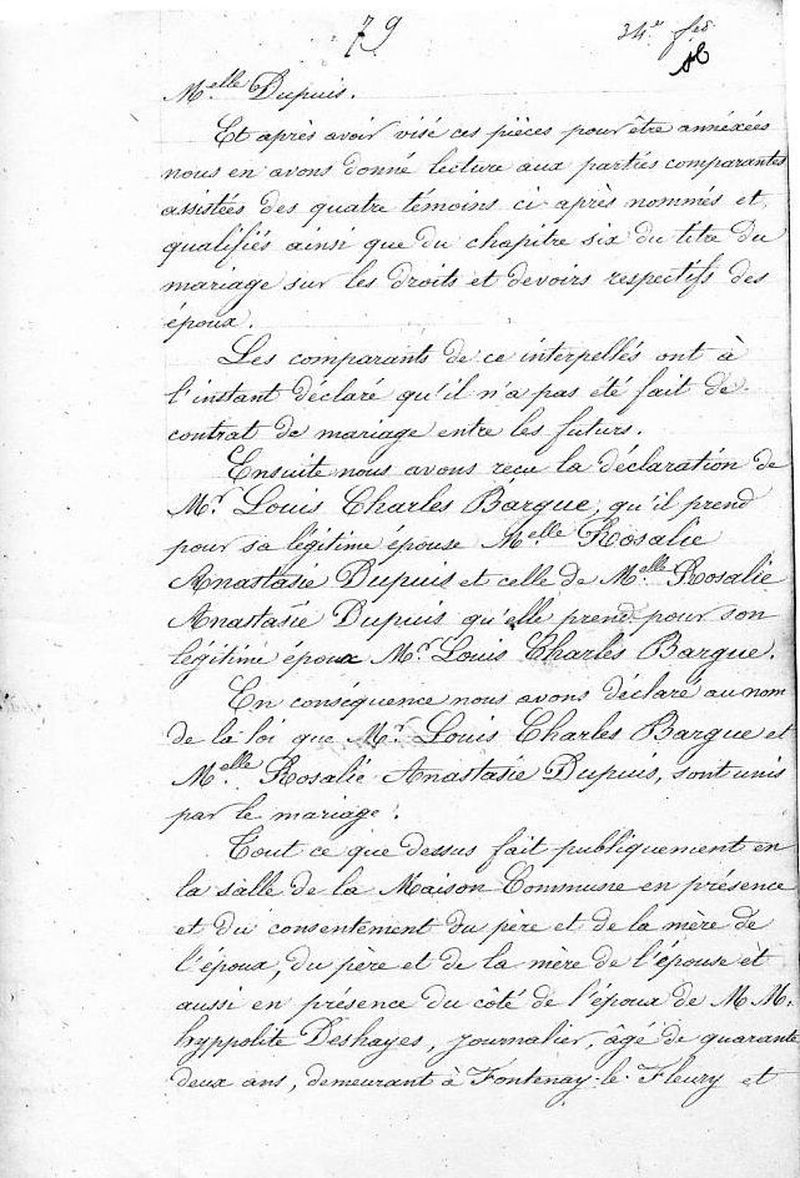 79
34e feo.
Melle Dupuis.
Et après avoir visé ces pièces pour être annéxées
nous en avons donné lecture aux parties comparantes
assistées des quatre témoins ci après nommés et
qualifiés ainsi que du chapitre six du titre du
mariage sur les droits et devoirs respectifs des
époux.
Les comparants de ce interpellés ont à
l'instant déclaré qu'il n'a pas été fait de
contrat de mariage entre les futurs.
Ensuite nous avons reçu la déclaration de
Mr. Louis Charles Bargue, qu'il prend
pour sa légitime épouse Melle Rosalie
Anastasie Dupuis et celle de Melle Rosalie
Anastasie Dupuis qu'elle prend pour son
légitime époux Mr. Louis Charles Bargue.
En conséquence nous avons déclaré au nom
de la loi que Mr. Louis Charles Bargue et
Melle Rosalie Anastasie Dupuis, sont unis
par le mariage.
Tout ce que dessus fait publiquement en
la salle de la Maison Commune en présence
et du consentement du père et de la mère de
l'époux, du père et de la mère de l'épouse et
aussi en présence du côté de l'époux de MM.
hyppolite Deshayes, journalier, âgé de quarante
deux ans, demeurant à Fontenay-le-Fleury et